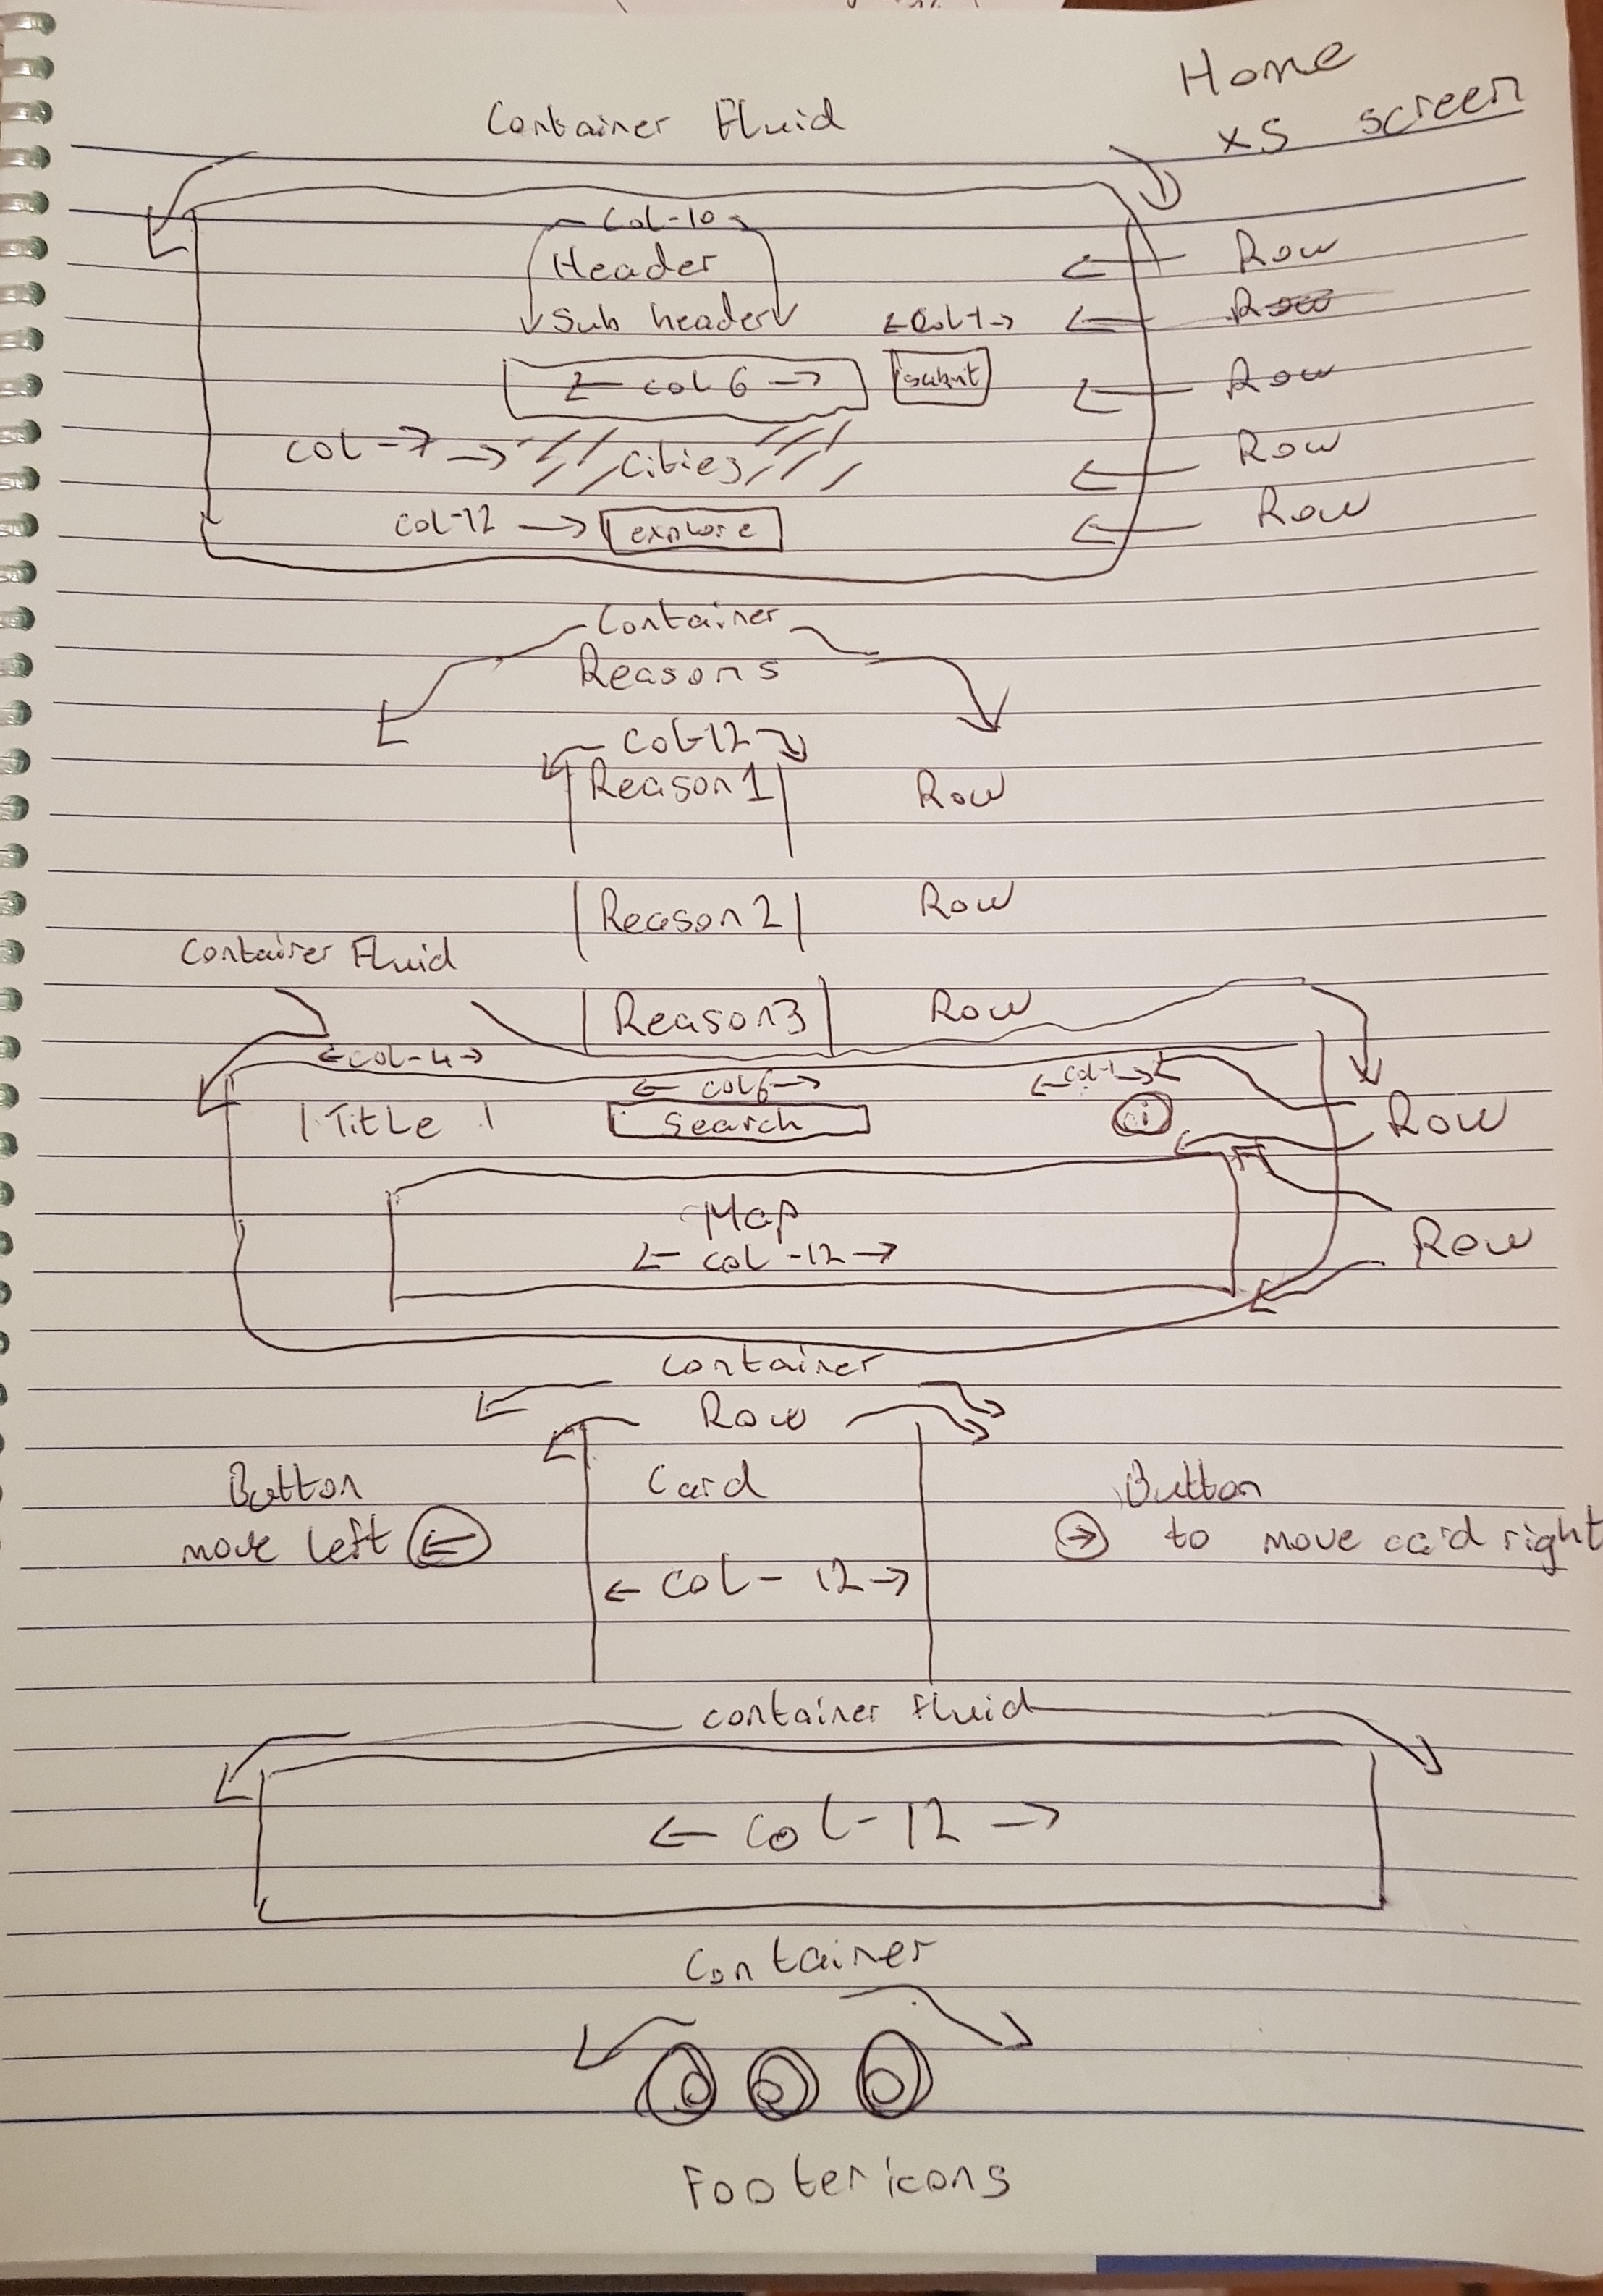 Home
xs screen
Container Fluid
Col-10
Header Row
Sub header Col-1 Row
col 6 submit Row
Col-7 Cities Row
Col-12 explore Row
Container
Reasons
Col-12
Reason 1 Row
Reason 2 Row
Container Fluid
Reason 3 Row
Col-4 col 6 col-1
Title Search i Row
Map
col-12 Row
Container
Row
Button Card Button
move left to move card right
col-12
container fluid
col-12
Container
Footer icons